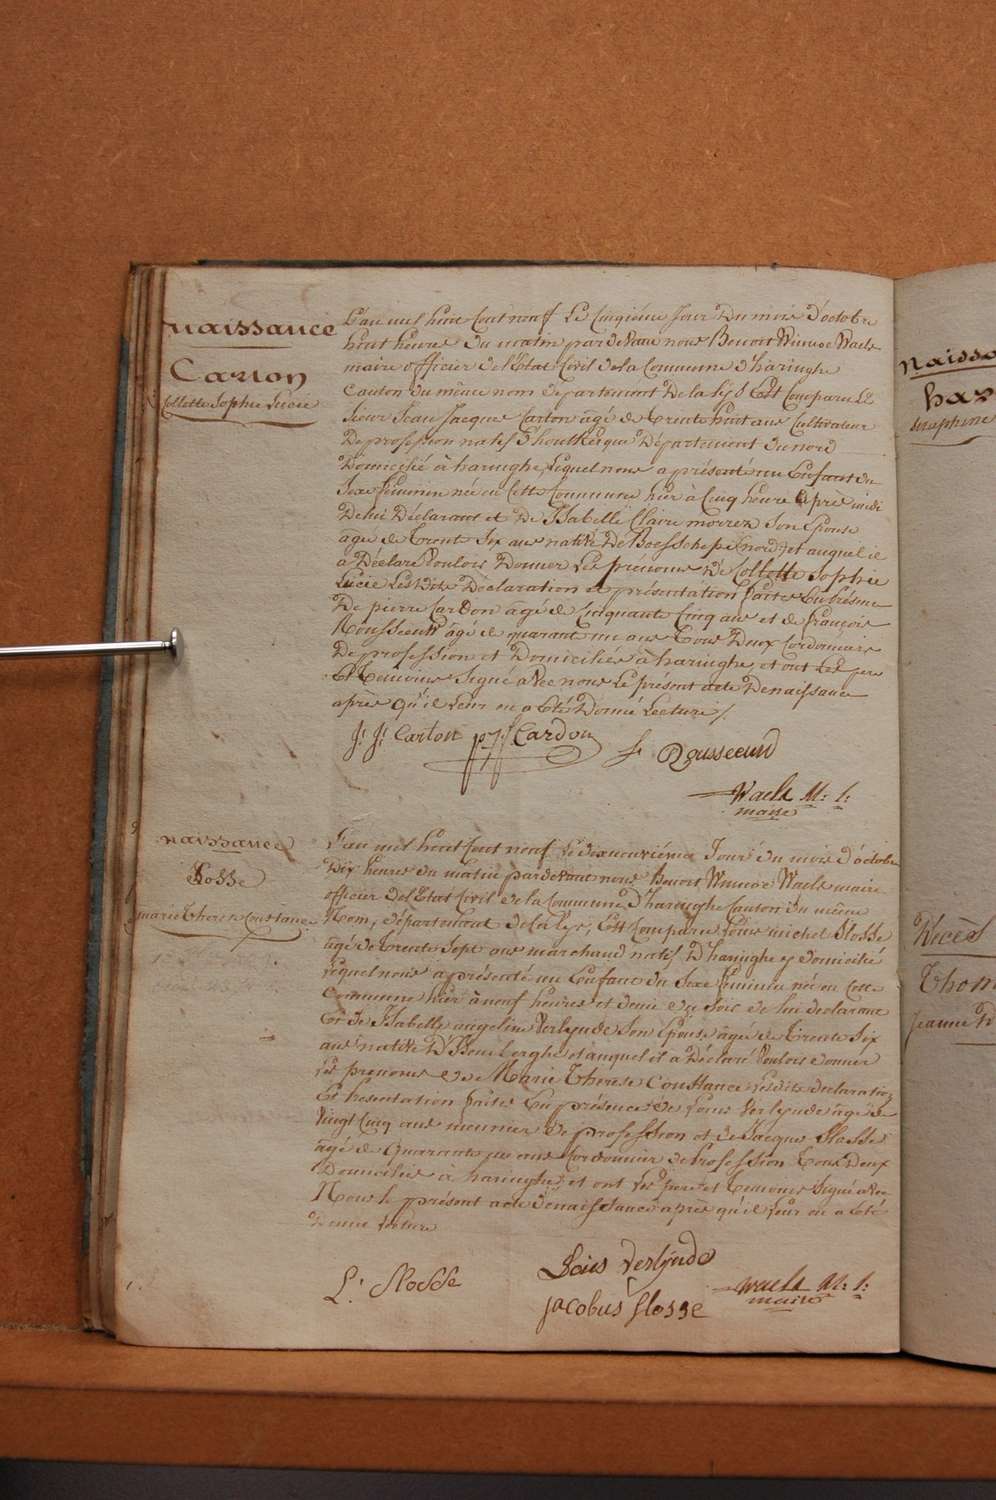 naissance
Carton
Collette Sophie Lucie
L'an mil huit Cent neuf Le Cinqième Jour Du mois D'octobre
huit heures Du matin pardevan nous Benoit Winnoc Waels
maire officier de l'Etat Civil de la Commune d'haringhe
Canton du même nom departement De la Lys Est Comparu Le
Sieur Jean Jacque Carton âgé de Trente huit ans Cultivateur
De profession natif D'houtkerque Département du nord
Domicilié à haringhe, lequel nous a présenté un Enfant du
Sexe féminin née en Cette Commune hier à Cinq heure après midi
De lui Déclarant et De Isabelle Claire morren Son Epouse
age de Trent Six ans native De Boesschepe (nord) et auquel il
a Déclaré Vouloir Donner Les prénoms De Collette Sophie
Lucie Les Dits Déclaration et présentation faites En présence
De pierre Cardon âgé de Cinquante Cinq ans et de François
Rousseeuw âgé de quarant un ans Tous Deux Cordonniers
De profession et Domiciliés à haringhe, et ont Les père
Et Temoins Signé avec nous Le présent acte De naissance
après qu'il Leur en a Eté Donné Lecture /.
J: J: Carton p: J: Cardon
f Rousseeuw
Waels M: S:
maire
naissance
Slosse
marie Therese Constance
L'an mil huit Cent neuf Le dixneuvième Jour du mois d'octobre
Dix heures du matin pardevant nous Benoit Winnoc Waels maire
officier de l'Etat Civil de la Commune D'haringhe Canton du même
Nom, département de la lys, Est Comparu Louis michel Slosse
âgé de Trente Sept ans marchand natif D'haringhe y domicilié
lequel nous a présenté un Enfant du Sexe féminin née en Cette
Commune hier à neuf heures et demie du Soir de lui declarant
Et de Isabelle angeline Verlynde Son Epouse âgée de Trente Six
ans native D' et auquel il a Déclaré Vouloir donner
Les prenoms de Marie Thérese Constance Lesdits declaration
Et Présentation faites En présence de Louis Verlynde âgé de
Vingt Cinq ans meunier de profession et de Jacque Slosse
âgé de Quarante ans Cordonnier de Profession Tous Deux
Domiciliés à haringhe, et ont Les pere et Temoins Signé avec
Nous le présent acte de naissance apres qu'il leur en a Eté
Donné lecture
L: Slosse
Louis Verlynde
jacobus slosse
waels M: S:
maire
naissa
has
seraphine
Décès
Thom
Jeanne